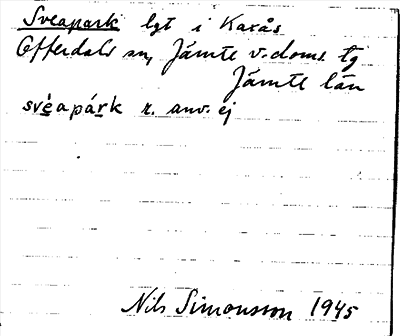 Sveapark lgt i Kaxås
Offerdals sn, Jämtl v. doms. tg
Jämtl län
svèapárk r. anv. ej
Nils Simonsson 1945